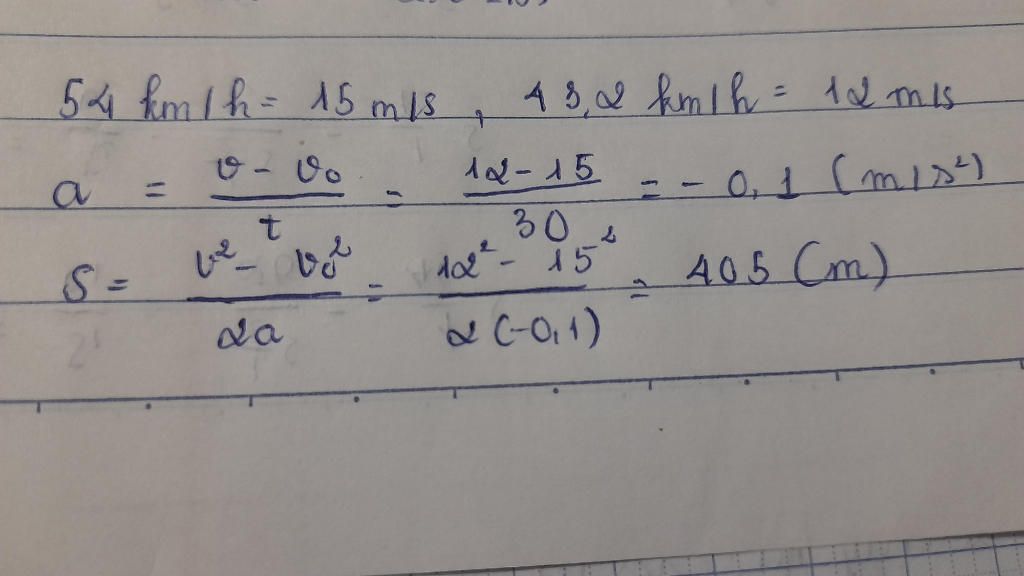 54 km/h = 15 m/s , 43,2 km/h = 12 m/s
a = (v - v₀)/t = (12 - 15)/30 = - 0,1 (m/s²)
S = (v² - v₀²)/2a = (12² - 15²)/2(-0,1) = 405 (m)